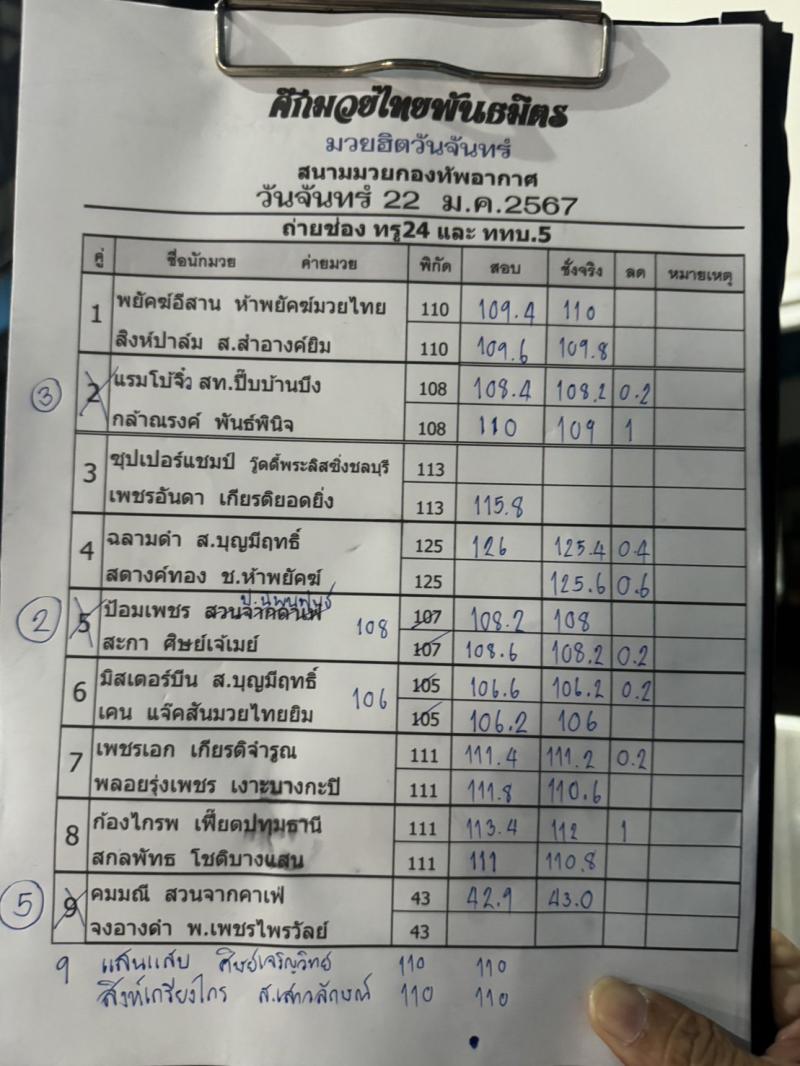 ศึกมวยไทยพันธมิตร
มวยฮิตวันจันทร์
สนามมวยกองทัพอากาศ
วันจันทร์ 22 ม.ค.2567
ถ่ายช่อง ทรู24 และ ททบ.5
คู่ ชื่อนักมวย ค่ายมวย พิกัด สอบ ชั่งจริง ลด หมายเหตุ
1 พยัคฆ์อีสาน ห้าพยัคฆ์มวยไทย 110 109.4 110
สิงห์ปาล์ม ส.สำอางค์ยิม 110 109.6 109.8
3 2 แรมโบ้จิ๋ว สท.ปี๊บบ้านบึง 108 108.4 108.2 0.2
กล้าณรงค์ พันธ์พินิจ 108 110 109 1
3 ซุปเปอร์แชมป์ วู๊ดดี้พระลิสซิ่งชลบุรี 113
เพชรอันดา เกียรติยอดยิ่ง 113 115.8
4 ฉลามดำ ส.บุญมีฤทธิ์ 125 126 125.4 0.4
สตางค์ทอง ช.ห้าพยัคฆ์ 125 125.6 0.6
2 5 ป้อมเพชร สวนจากคาเฟ่ 108 107 108.2 108
สะกา ศิษย์เจ้เมย์ 107 108.6 108.2 0.2
6 มิสเตอร์บีน ส.บุญมีฤทธิ์ 106 105 106.6 106.2 0.2
เคน แจ๊คสันมวยไทยยิม 105 106.2 106
7 เพชรเอก เกียรติจำรูณ 111 111.4 111.2 0.2
พลอยรุ่งเพชร เงาะบางกะปิ 111 111.8 110.6
8 ก้องไกรพ เฟี๊ยตปทุมธานี 111 113.4 112 1
สกลพัทธ โชติบางแสน 111 111 110.8
5 9 คมมณี สวนจากคาเฟ่ 43 42.9 43.0
จงอางดำ พ.เพชรไพรวัลย์ 43
9 แสนแสบ ศิษย์เจริญวิทย์ 110 110
สิงห์เกรียงไกร ส.เสาวลักษณ์ 110 110